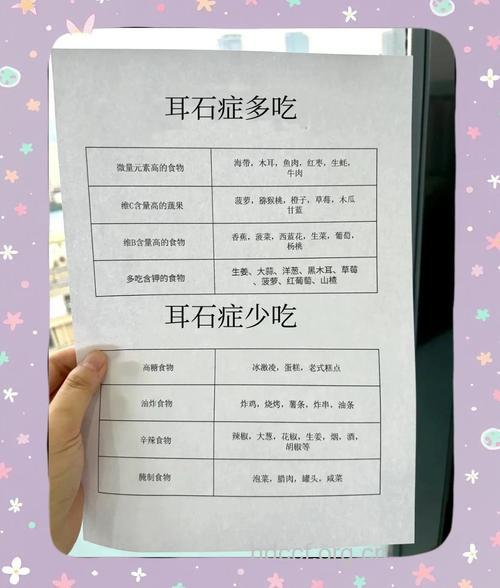 耳石症多吃
微量元素高的食物
海带，木耳，鱼肉，红枣，生蚝，
牛肉
维C含量高的蔬果
菠萝，猕猴桃，橙子，草莓，木瓜
甘蓝
维B含量高的食物
香蕉，菠菜，西蓝花，生菜，葡萄，
杨桃
多吃含钾的食物
生姜、大蒜、洋葱、黑木耳、草莓
、菠萝、红葡萄、山楂
耳石症少吃
高糖食物
冰激凌，蛋糕，老式糕点
油炸食物
炸鸡，烧烤，薯条，炸串，油条
辛辣食物
辣椒，大葱，花椒，生姜，烟，酒，
胡椒等
腌制食物
泡菜，腊肉，罐头，咸菜